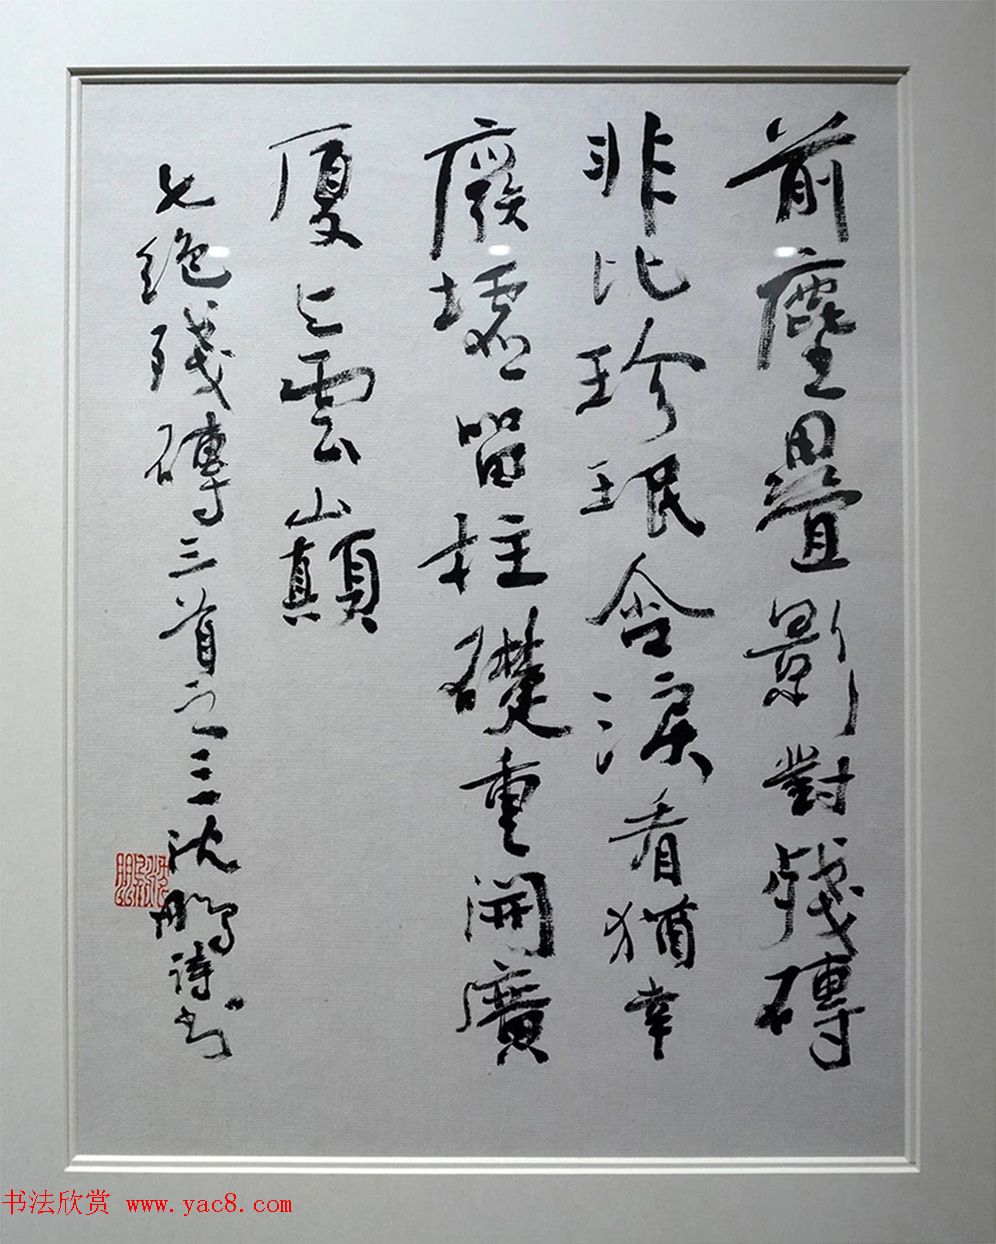 前塵疊影對殘磚
非比珍珉含淚看猶幸
廢墟留柱礎重開廣
厦上雲山巔
七絕殘磚三首之三沈鵬詩書
沈鵬
书法欣赏 www.yac8.com